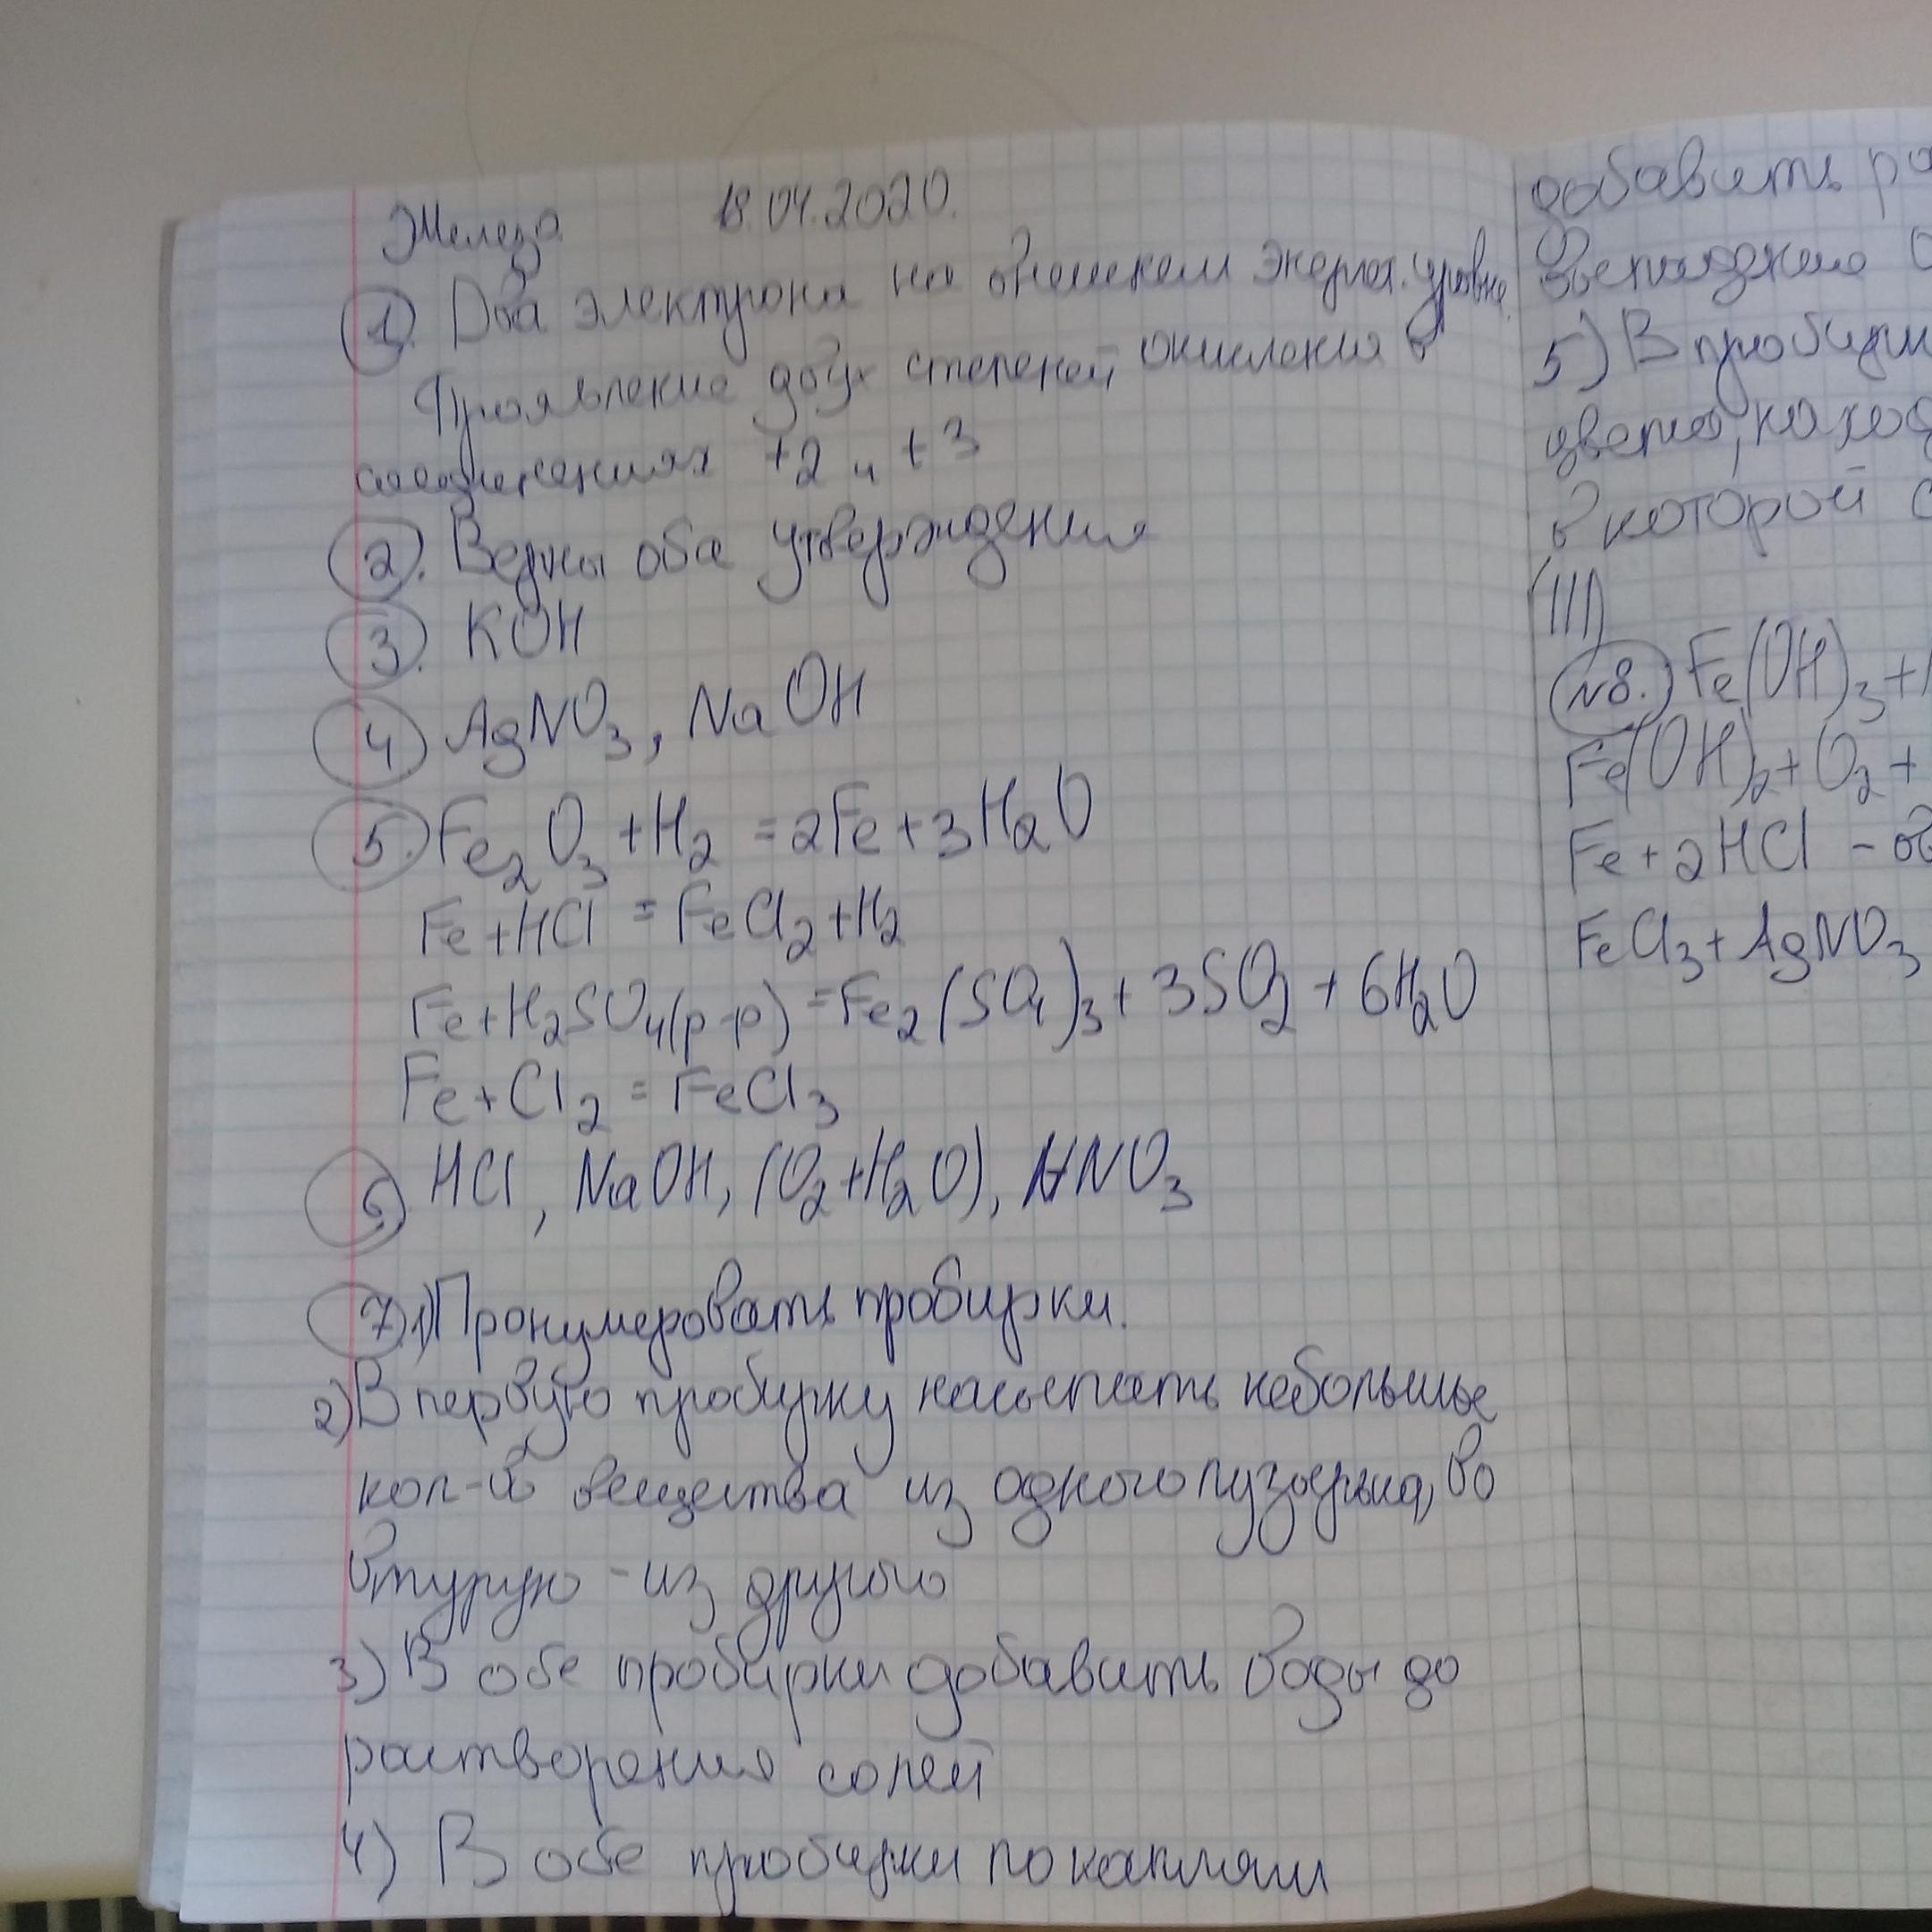 Железо 18.04.2020.
1. Два электрона на внешнем энергет. уровне.
Проявление двух степеней окисления в
соединениях +2 и +3
2. Верны оба утверждения
3. KOH
4 AgNO3, NaOH
5. Fe2O3+H2=2Fe+3H2O
Fe+HCl=FeCl2+H2
Fe+H2SO4(р-р)=Fe2(SO4)3+3SO2+6H2O
Fe+Cl2=FeCl3
6) HCl, NaOH, (O2+H2O), HNO3
7) 1) Пронумеровать пробирки.
2) В первую пробирку насыпать небольшое
кол-во вещества из одного пузырька, во
вторую - из другого
3) В обе пробирки добавить воды до
растворения солей
4) В обе пробирки по каплям
добавить
5) В
в которой
(III)
№8. Fe(OH)3+
Fe(OH)2+O2+
Fe+2HCl -
FeCl3+AgNO3